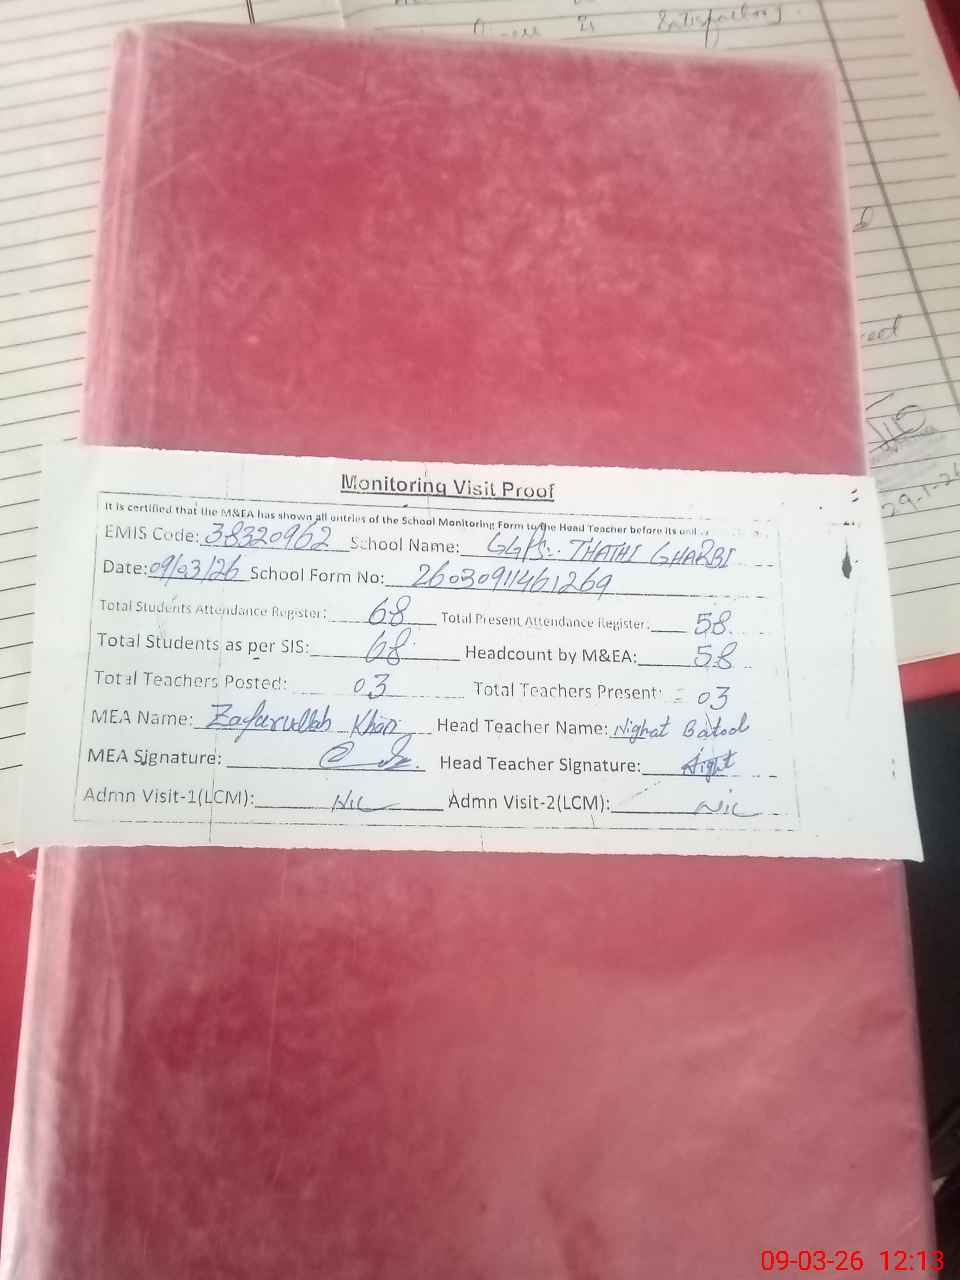 is Satisfactory.
Monitoring Visit Proof
It is certified that the M&EA has shown all entries of the School Monitoring Form to the Head Teacher before its
EMIS Code: 38320962 School Name: GGPS. THATHI GHARBI
Date: 09/03/26 School Form No: 26030911461269
Total Students Attendance Register: 68 Total Present Attendance Register: 58
Total Students as per SIS: 68 Headcount by M&EA: 58
Total Teachers Posted: 03 Total Teachers Present: 03
MEA Name: Zafarullah Khan Head Teacher Name: Nighat Batool
MEA Signature: Head Teacher Signature:
Admn Visit-1(LCM): Nil Admn Visit-2(LCM): Nil
29-1-26
09-03-26 12:13